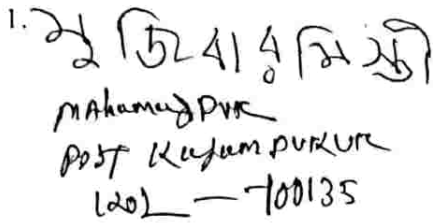 1. মুজিবাবু মিস্ত্রী
MAhamudPUR
POST KusumPUKUR
KOL — 700135